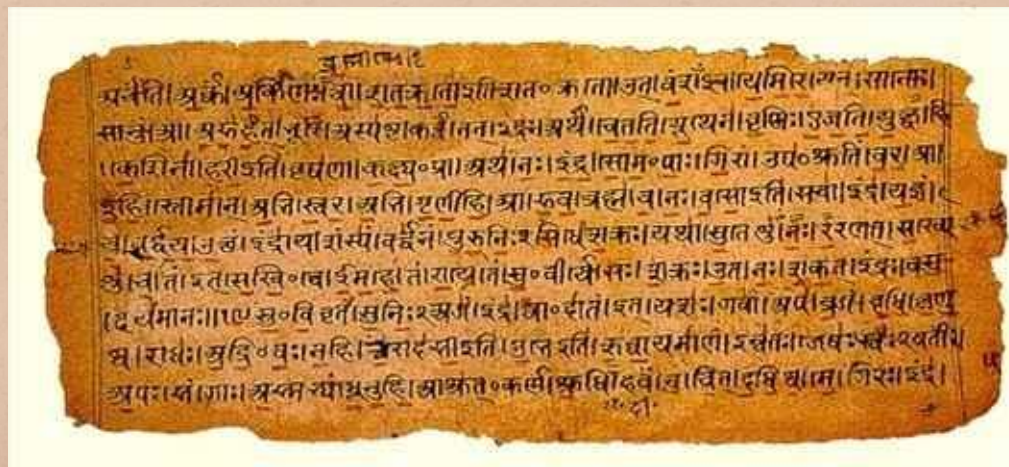 ब्रह्माणः
अर्चंति।अर्कं।अर्किणः।त्वा।शतक्रतो॒इति॑शत०क्रतो।उत्।वंशंऽइव।येमिरे।यत्।सानोः।
सानुं।आ।अरुहत्।भूरि।अस्पष्ट।कर्त्वं।तत्।इंद्रः।अर्थं।चेतति।यूथेन।वृष्णिः।एजति।युक्ष्व।हि
।केशिना।हरीइति।वृषणा।कक्ष्य०प्रा।अथ।नः।इंद्र।सोम०पाः।गिरां।उप०श्रुतिं।चर।आ।
इहि।स्तोमान्।अभि।स्वर।अभि।गृणीहि।आ।रुव।ब्रह्म।च।नः।वसोइति।सचा।इंद्र।यज्ञं।
च।वर्द्धय।उक्थं।इंद्राय।शंस्यं।वर्द्धनं।पुरुनिःऽसिधे।शक्रः।यथा।सुतेषु।नः।ररणत्।सख्ये
षु।च।तं।इत्।सखि०त्वे।ईमहे।तं।राये।तं।सु०वीर्ये।सः।शक्रः।उत।नः।शकत्।इंद्रः।वसु
।दयमानः॥१९॥सु०विवृतं।सुनिःऽअजं।इंद्र।त्वा०दातं।इत्।यशः।गवां।अप।व्रजं।वृधि।कृणु
ष्व।राधः।अद्रि०वः।नहि।त्वा।रोदसीइति।उभेइति।ऋघायमाणं।इन्वतः।जेषः।स्वःऽवतीः।
अपः।सं।गाः।अस्मभ्यं।धूनुहि।आश्रुत्०कर्ण।श्रुधि।हवं।नु।चित्।दधिष्व।मे।गिरः।इंद्र।